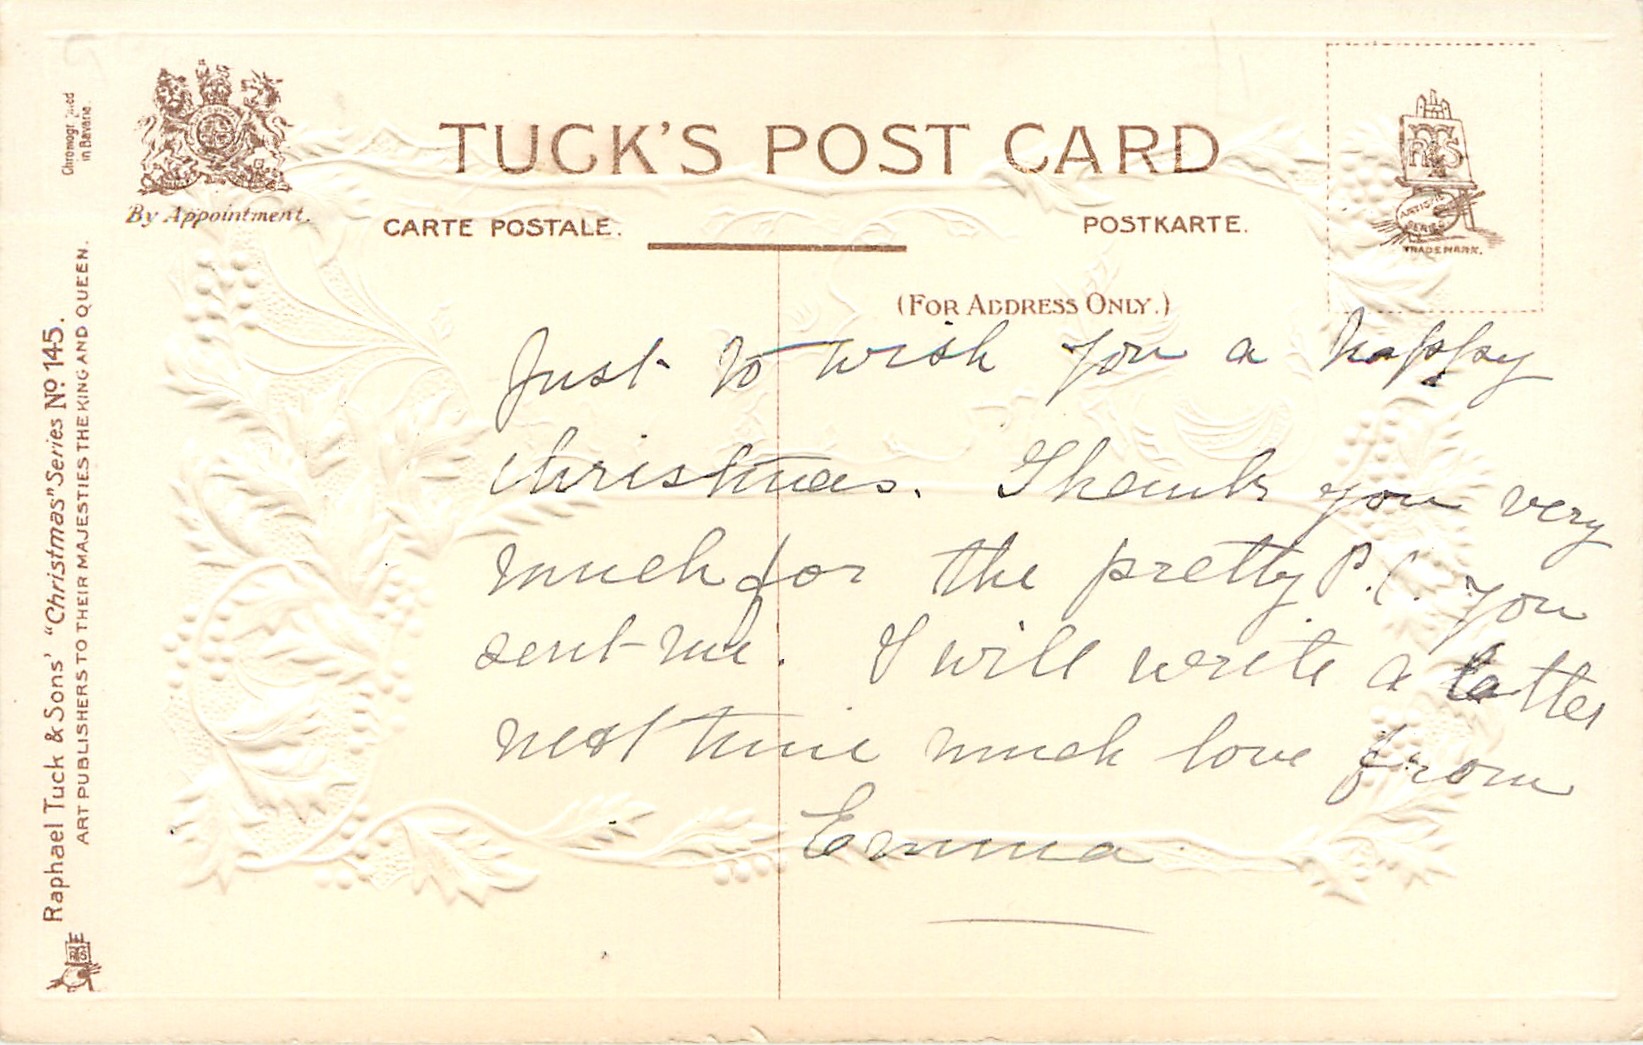 Chromographed
in Bavaria.
By Appointment.
TUCK'S POST CARD
CARTE POSTALE.
POSTKARTE.
(FOR ADDRESS ONLY.)
RTS
ARTISTIC
SERIES
TRADE MARK.
Raphael Tuck & Sons' "Christmas" Series No 145.
ART PUBLISHERS TO THEIR MAJESTIES THE KING AND QUEEN.
Just to wish you a happy
Christmas. Thank you very
much for the pretty P.C. you
sent me. I will write a letter
next time much love from
Emma